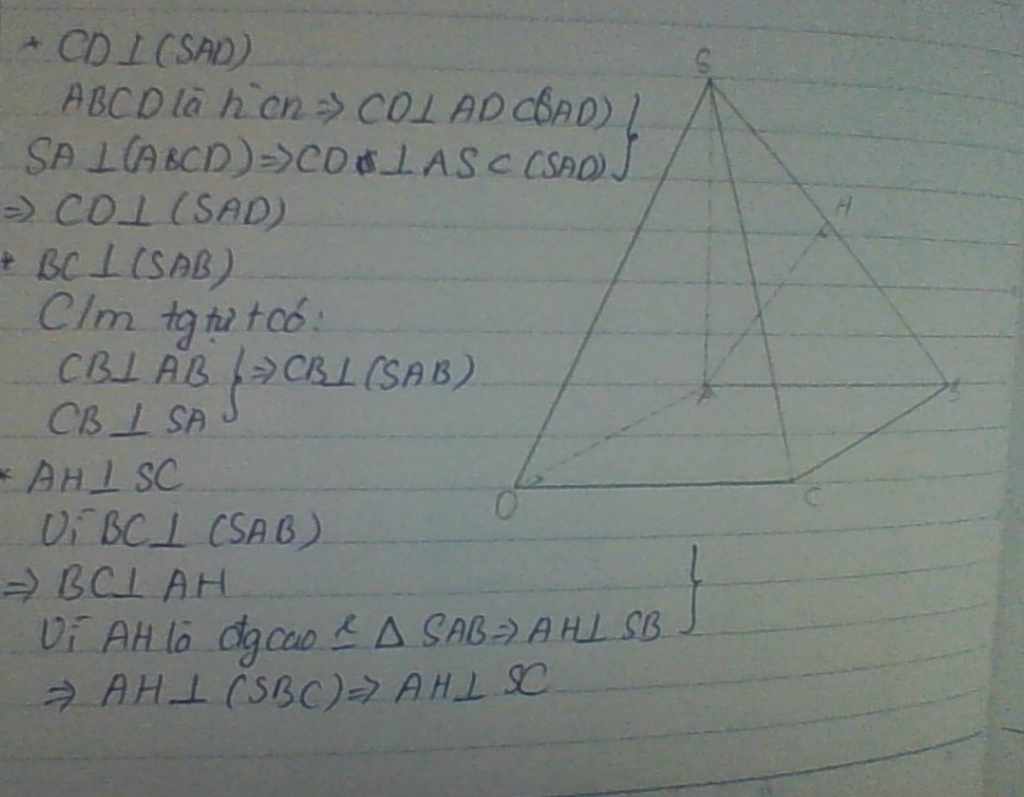 * CD⊥(SAD)
ABCD là hcn ⇒ CD⊥AD⊂(SAD) }
SA⊥(ABCD)⇒CD⊥AS⊂(SAD) }
⇒ CD⊥(SAD)
* BC⊥(SAB)
C/m tg tự t có:
CB⊥AB } ⇒CB⊥(SAB)
CB⊥SA }
* AH⊥SC
Vì BC⊥(SAB)
⇒ BC⊥AH }
Vì AH là đgcao Δ SAB⇒AH⊥SB }
⇒ AH⊥(SBC)⇒AH⊥SC
S
H
A
B
D
C